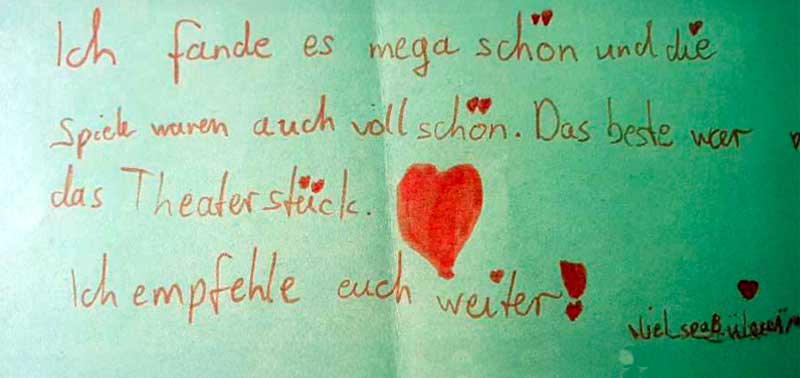 Ich fande es mega schön und die
Spiele waren auch voll schön. Das beste war
das Theaterstück.
Ich empfehle euch weiter!
Viel spaß